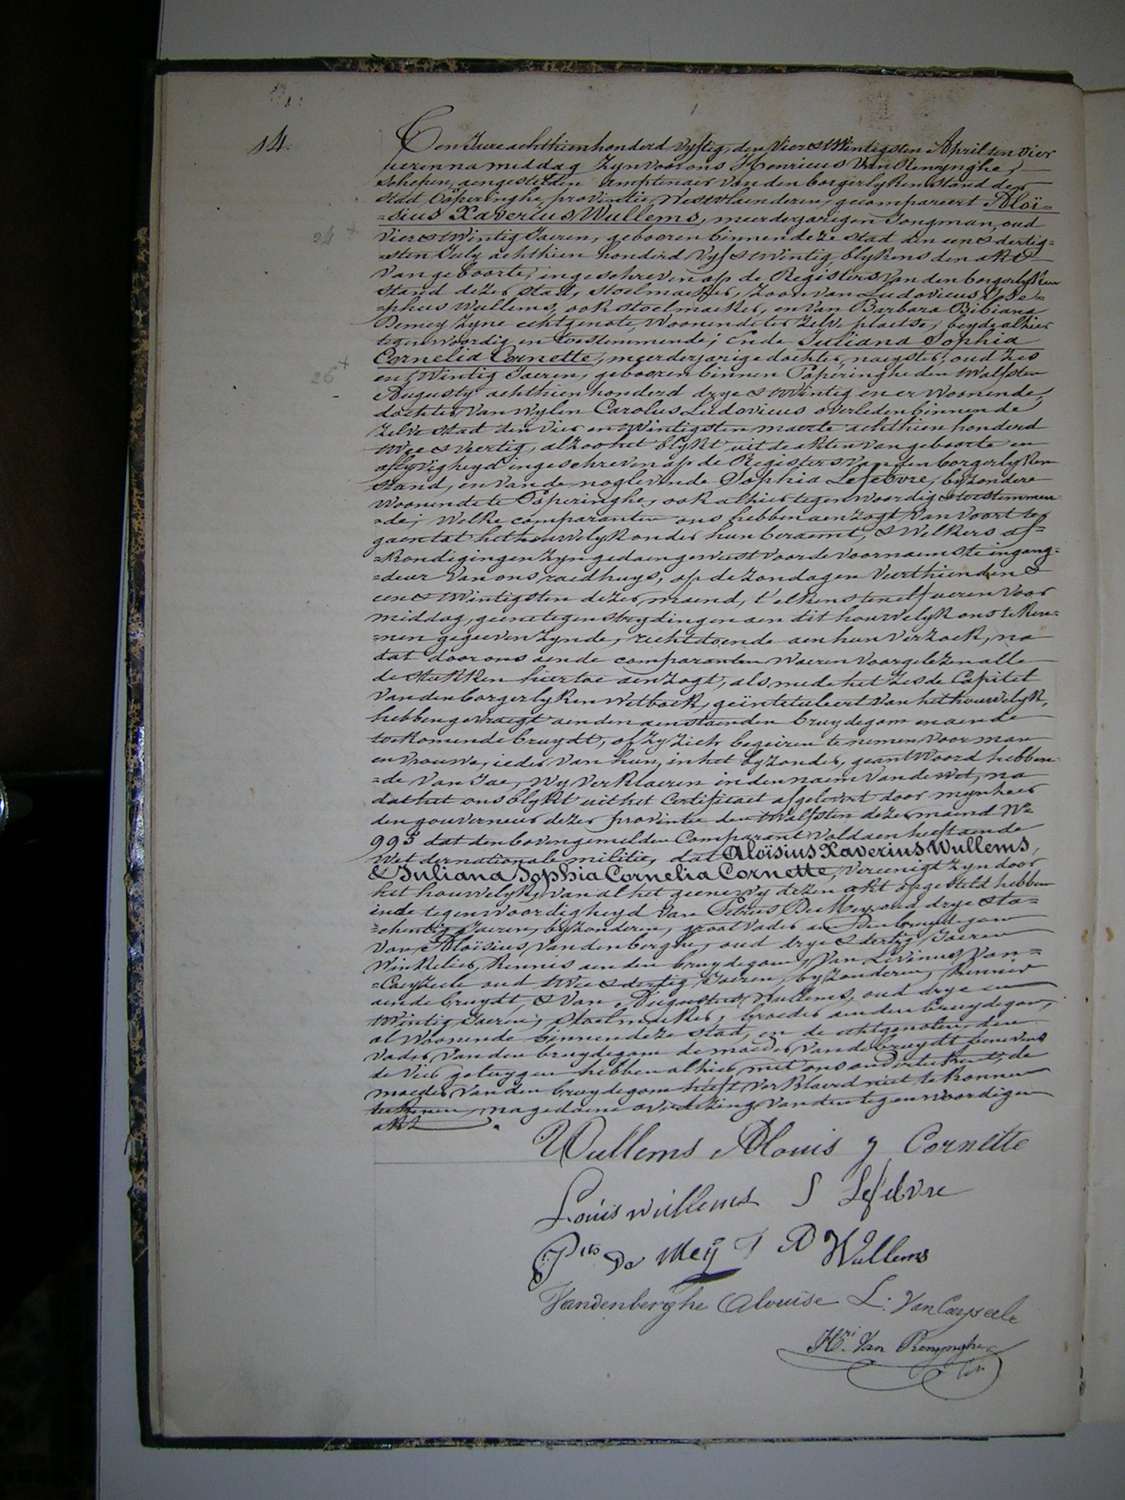 14.
Den Jaere achthienhonderd vyftig, den vier & twintigsten April ten vier
ueren namiddag zyn voor ons Henricus Van Renynghe,
schepen, aengestelden amptenaer van den borgerlyken stand der
stad Poperinghe, provintie Westvlaenderen, gecompareert Aloï=
=sius Xaverius Wullems, meerderjarigen jongman, oud
24 +
vier & twintig Jaeren, gebooren binnen deze stad den een & dertig=
=sten July achthien honderd vyf & twintig, blykens den akt
van geboorte, ingeschreven op de Registers van den borgerlyken
stand dezer stad, stoelmaeker, zoon van Ludovicus Jose=
=phus Wullems, ook stoelmaeker, en van Barbara Bibiana
Demey zyne echtgenote, woonende ter zelve plaetse, beyde alhier
tegenwoordig en toestemmende; Ende Juliana Sophia
Cornelia Cornette, meerderjarige dochter, naeyster, oud zes
26 +
en twintig Jaeren, gebooren binnen Poperinghe den twalfsten
Augusty achthien honderd drye & twintig en er woonende,
dochter van wylen Carolus Ludovicus overleden binnen de
zelve stad den vier en twintigsten maerte achthien honderd
twee & veertig, alzoo het blykt uit de akten van geboorte en
aflyvigheyd ingeschreven op de Registers van den borgerlyken
stand, en van de noglevende Sophia Lefebvre, byzondere
woonende te Poperinghe, ook alhier tegenwoordig & toestemmen
=de; welke comparanten ons hebben aenzogt van voort te
gaen tot het houwelyk onder hun beraemt, & welkers af=
=kondigingen zyn gedaen geweest voor de voornaemste ingang=
=deur van ons raedhuys, op de zondagen veerthienden &
een & twintigsten dezer maend, t'elkens ten elf ueren voor
middag, geene tegenstrydingen aen dit houwelyk ons te ken=
=nen gegeeven zynde, rechtdoende aen hun verzoek, na
dat door ons aen de comparanten waeren voorgelezen alle
de stukken hiertoe aenzogt, als mede het zesde Capitel
van den borgerlyken wetboek, geïntituleert van het houwelyk,
hebben gevraegt aen den aenstaenden bruydegom en aen de
toekomende bruydt, of zy zich begeiren te nemen voor man
en vrouwe, ieder van hun, in het byzonder, geantwoord hebben=
=de van Jae, wy verklaeren in den naem van de wet, na
dat het ons blykt uit het Certificaet afgelevert door mynheer
den gouverneur dezer provintie den twalfsten dezer maend No
995 dat den bovengemelden Comparant voldaen heeft aen de
wet der nationale militie, dat Aloïsius Xaverius Wullems,
& Juliana Sophia Cornelia Cornette, vereenigt zyn door
het houwelyk; van al het geene wy dezen akt opgesteld hebben
in de tegenwoordigheyd van Petrus De Mey, oud drye &
tachentig Jaeren, byzonderen, grootvader aen den bruydegom
van Aloïsius Vandenberghe, oud drye & dertig Jaeren
winkelier, kennis aen den bruydegom, van Livinus Van=
=Caeyseele oud twee & dertig Jaeren, byzonderen, kennis
aen de bruydt, & van Augustus Wullems, oud drye en
twintig Jaeren, stoelmaeker, broeder aen den bruydegom,
al woonende binnen deze stad, en de echtgenoten, den
vader van den bruydegom de moeder van de bruydt benevens
de vier getuygen hebben alhier met ons onderteekent; de
moeder van den bruydegom heeft verklaerd niet te konnen
teekenen, na gedaene overlezing van den tegenwoordigen
akt.
Wullems Alouis J Cornette
Louis wullems S Lefebvre
Ptus De Meÿ A Wullems
Vandenberghe Alouise L. Van Caeyseele
Hri Van Renynghe